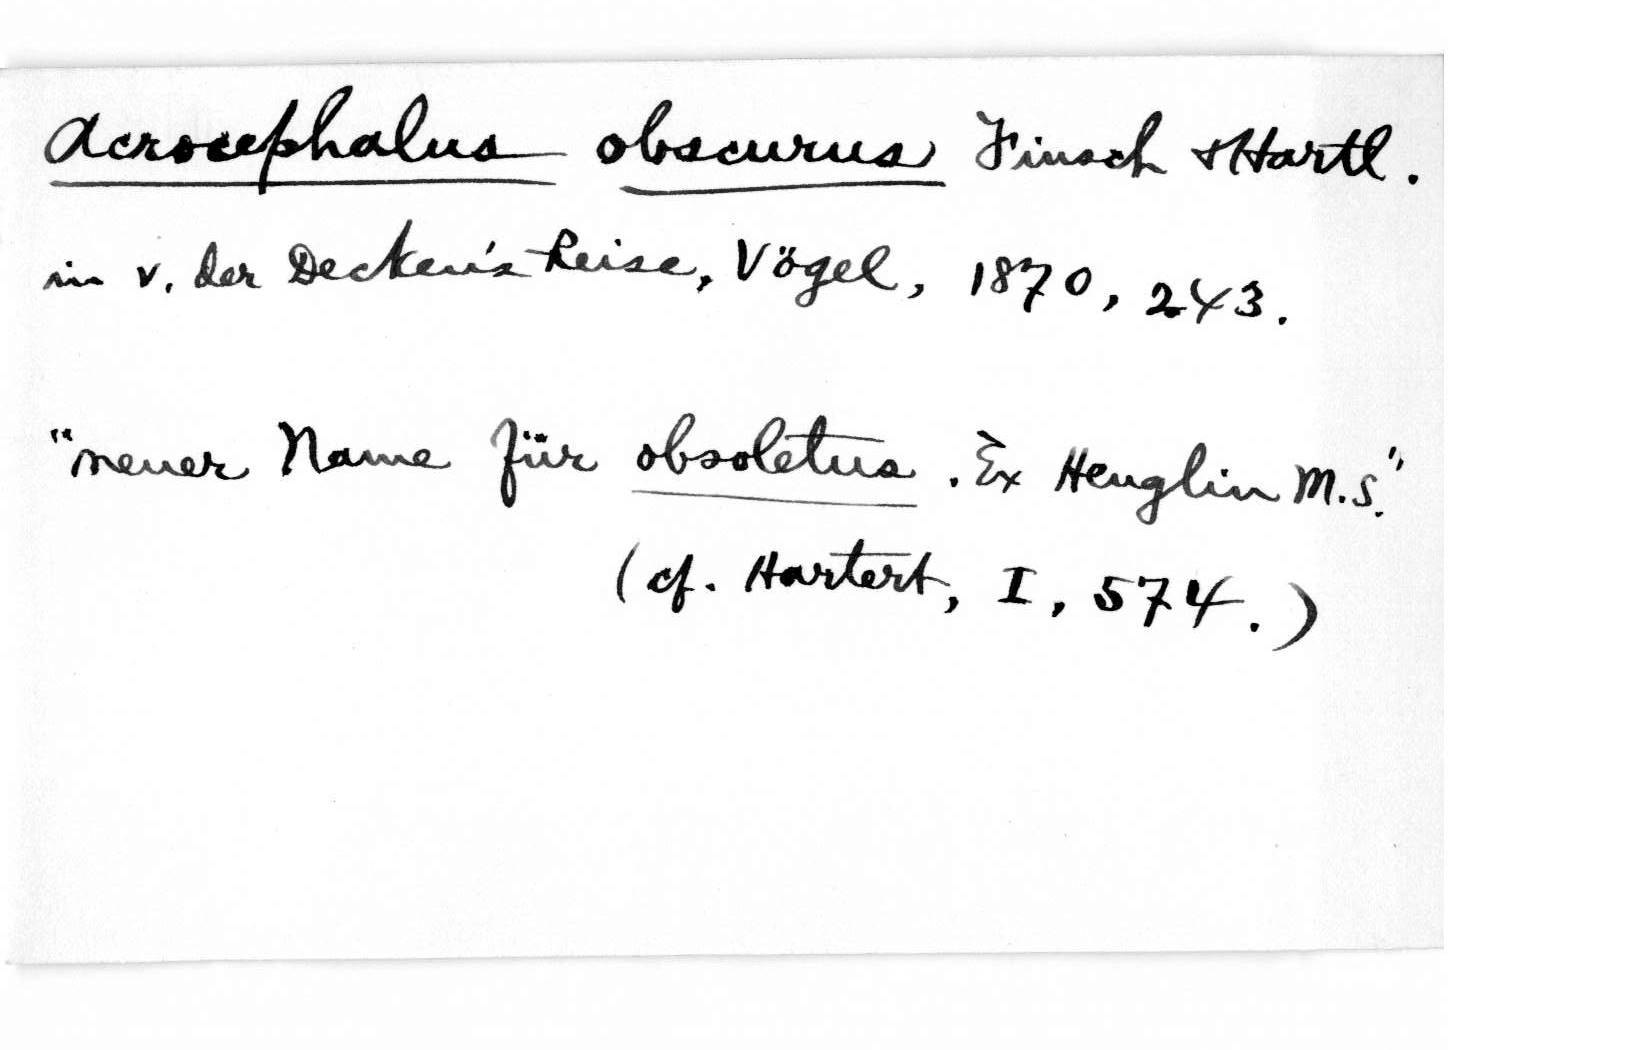 Acrocephalus obscurus Finsch & Hartl.
in v. der Decken's Reise, Vögel, 1870, 243.
"neuer Name für obsoletus. Ex Heuglin M.S."
(cf. Hartert, I, 574.)